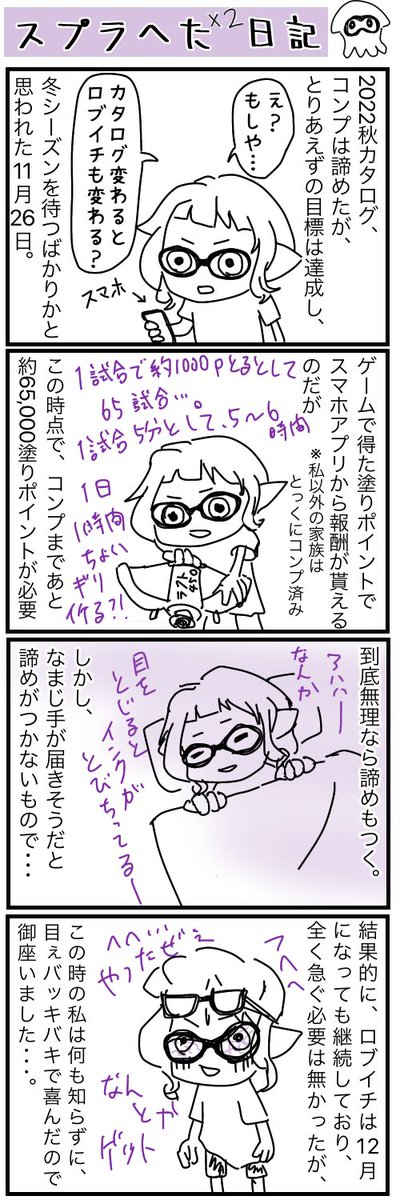 スプラへた×2日記
2022秋カタログ、
コンプは諦めたが、
とりあえずの目標は達成し、
え?
もしや…
カタログ変わると
ロブイチも変わる?
スマホ
冬シーズンを待つばかりかと
思われた11月26日。
ゲームで得た塗りポイントで
スマホアプリから報酬が貰える
のだが
※私以外の家族は
とっくにコンプ済み
1試合で約1000pとるとして
65試合…。
1試合5分として、5〜6時間
1日
1時間
ちょい
ギリ
作る?!
ラスト
450
この時点で、コンプまであと
約65,000塗りポイントが必要
到底無理なら諦めもつく。
アハハー
なんか
目を
とじると
インクが
とびちってるー
しかし、
なまじ手が届きそうだと
諦めがつかないもので・・・
結果的に、ロブイチは12月
になっても継続しており、
全く急ぐ必要は無かったが、
フヘヘ
へへい
やったぜぇ
なんとか
ゲット
この時の私は何も知らずに、
目ぇバッキバキで喜んだので
御座いました・・・。